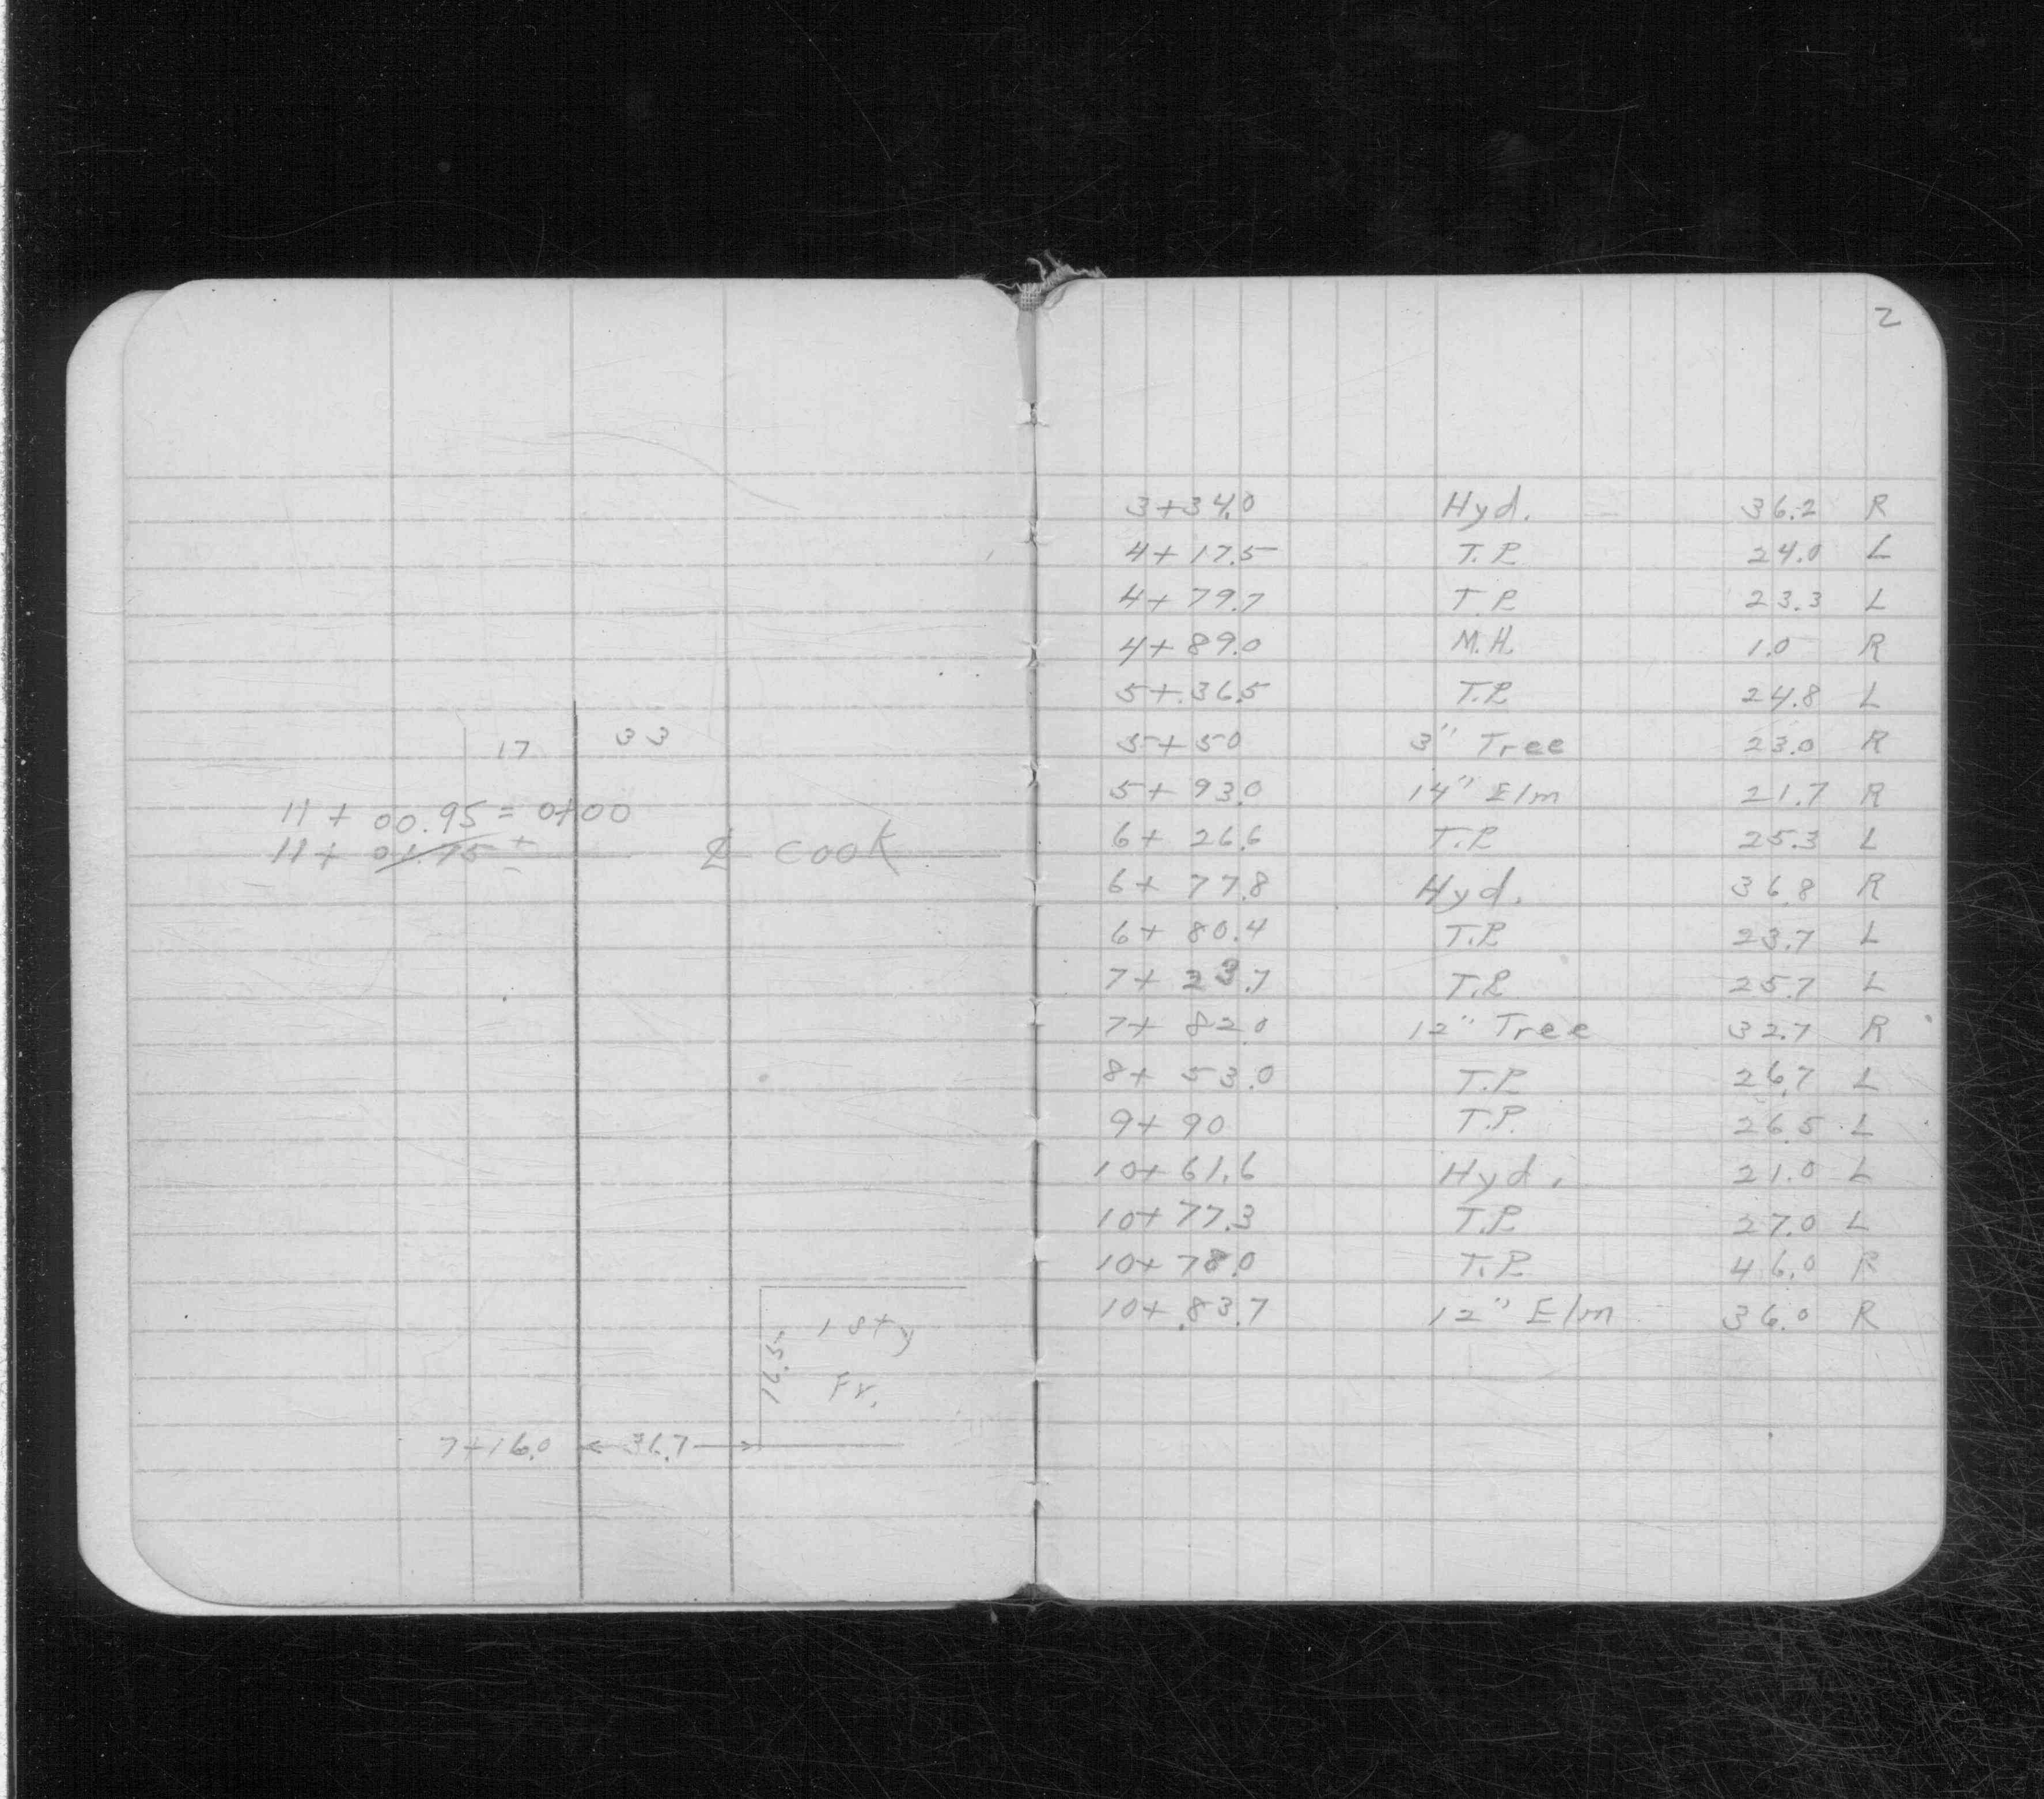 17 33
11 + 00.95 = 0+00
11 + 01.75 ±
℄ COOK
1 Sty
16.5
Fr.
7+16.0 36.7
2
3+34.0 Hyd. 36.2 R
4+17.5 T.P. 24.0 L
4+79.7 T.P. 23.3 L
4+89.0 M.H. 1.0 R
5+36.5 T.P. 24.8 L
5+50 3" Tree 23.0 R
5+93.0 14" Elm 21.7 R
6+26.6 T.P. 25.3 L
6+77.8 Hyd. 36.8 R
6+80.4 T.P. 23.7 L
7+23.7 T.P. 25.7 L
7+82.0 12" Tree 32.7 R
8+53.0 T.P. 26.7 L
9+90 T.P. 26.5 L
10+61.6 Hyd. 21.0 L
10+77.3 T.P. 27.0 L
10+78.0 T.P. 46.0 R
10+83.7 12" Elm 36.0 R